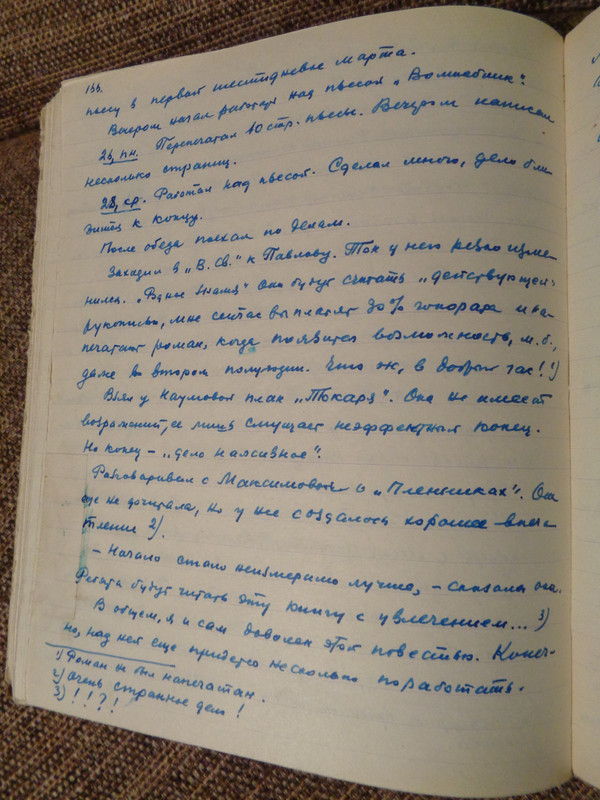 166.
пьесу в первой шестидневке марта.
Вечером начал работать над пьесой „Волшебник".
26, пн. Перепечатал 10 стр. пьесы. Вечером написал
несколько страниц.
28, ср. Работал над пьесой. Сделал много, дело бли-
зится к концу.
После обеда поехал по делам.
Заходил в „В. Св." к Павлову. Тон у него резко изме-
нился. Они будут считать „действующей"
рукописью, мне сейчас выплатят 30% гонорара и на-
печатают роман, когда появится возможность, м. б.,
даже во втором полугодии. Что ж, в добрый час! 1)
Взял у Наумовой план „Токаря". Она не имеет
возражений, ее лишь смущает неэффектный конец.
Но конец – „дело наживное".
Разговаривал с Максимовой о „Пленниках". Она
еще не дочитала, но у нее создалось хорошее впеча-
тление 2).
– Начало стало неизмеримо лучше, – сказала она.
Ребята будут читать эту книгу с увлечением... 3)
В общем, я и сам доволен этой повестью. Конеч-
но, над ней еще придется несколько поработать.
1) Роман не был напечатан.
2) Очень странное дело!
3) ! ! ? !